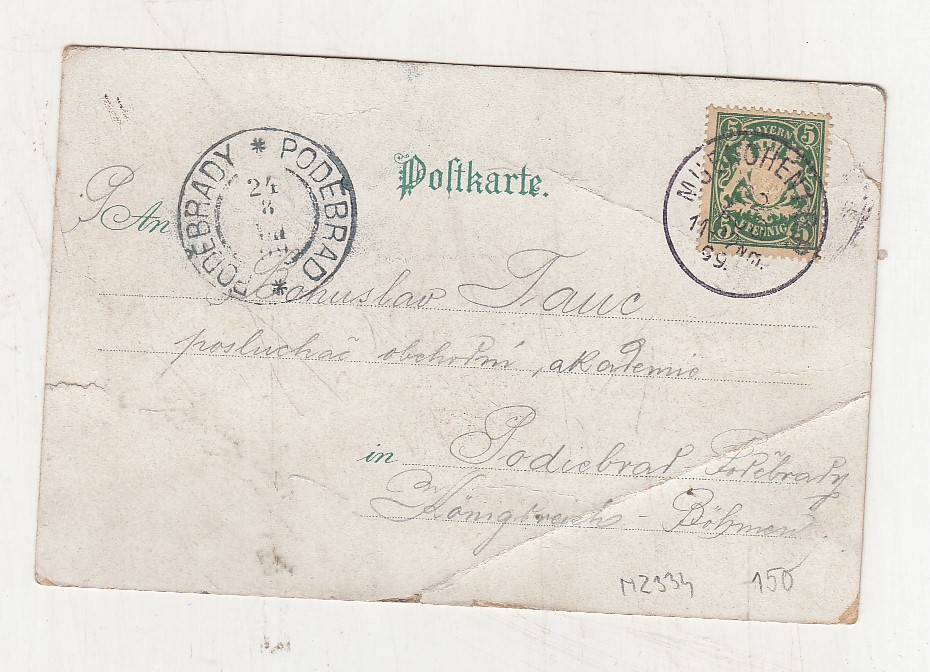 Postkarte.
5 BAYERN 5
5 PFENNIG 5
MUENCHEN
11
Nm.
99.
* PODĚBRAD * PODĚBRADY
24
8
P
An
Bohuslav Tauc
posluchač obchodní akademie
in Podiebrad Poděbrady
Königreich - Böhmen
MZ334 150